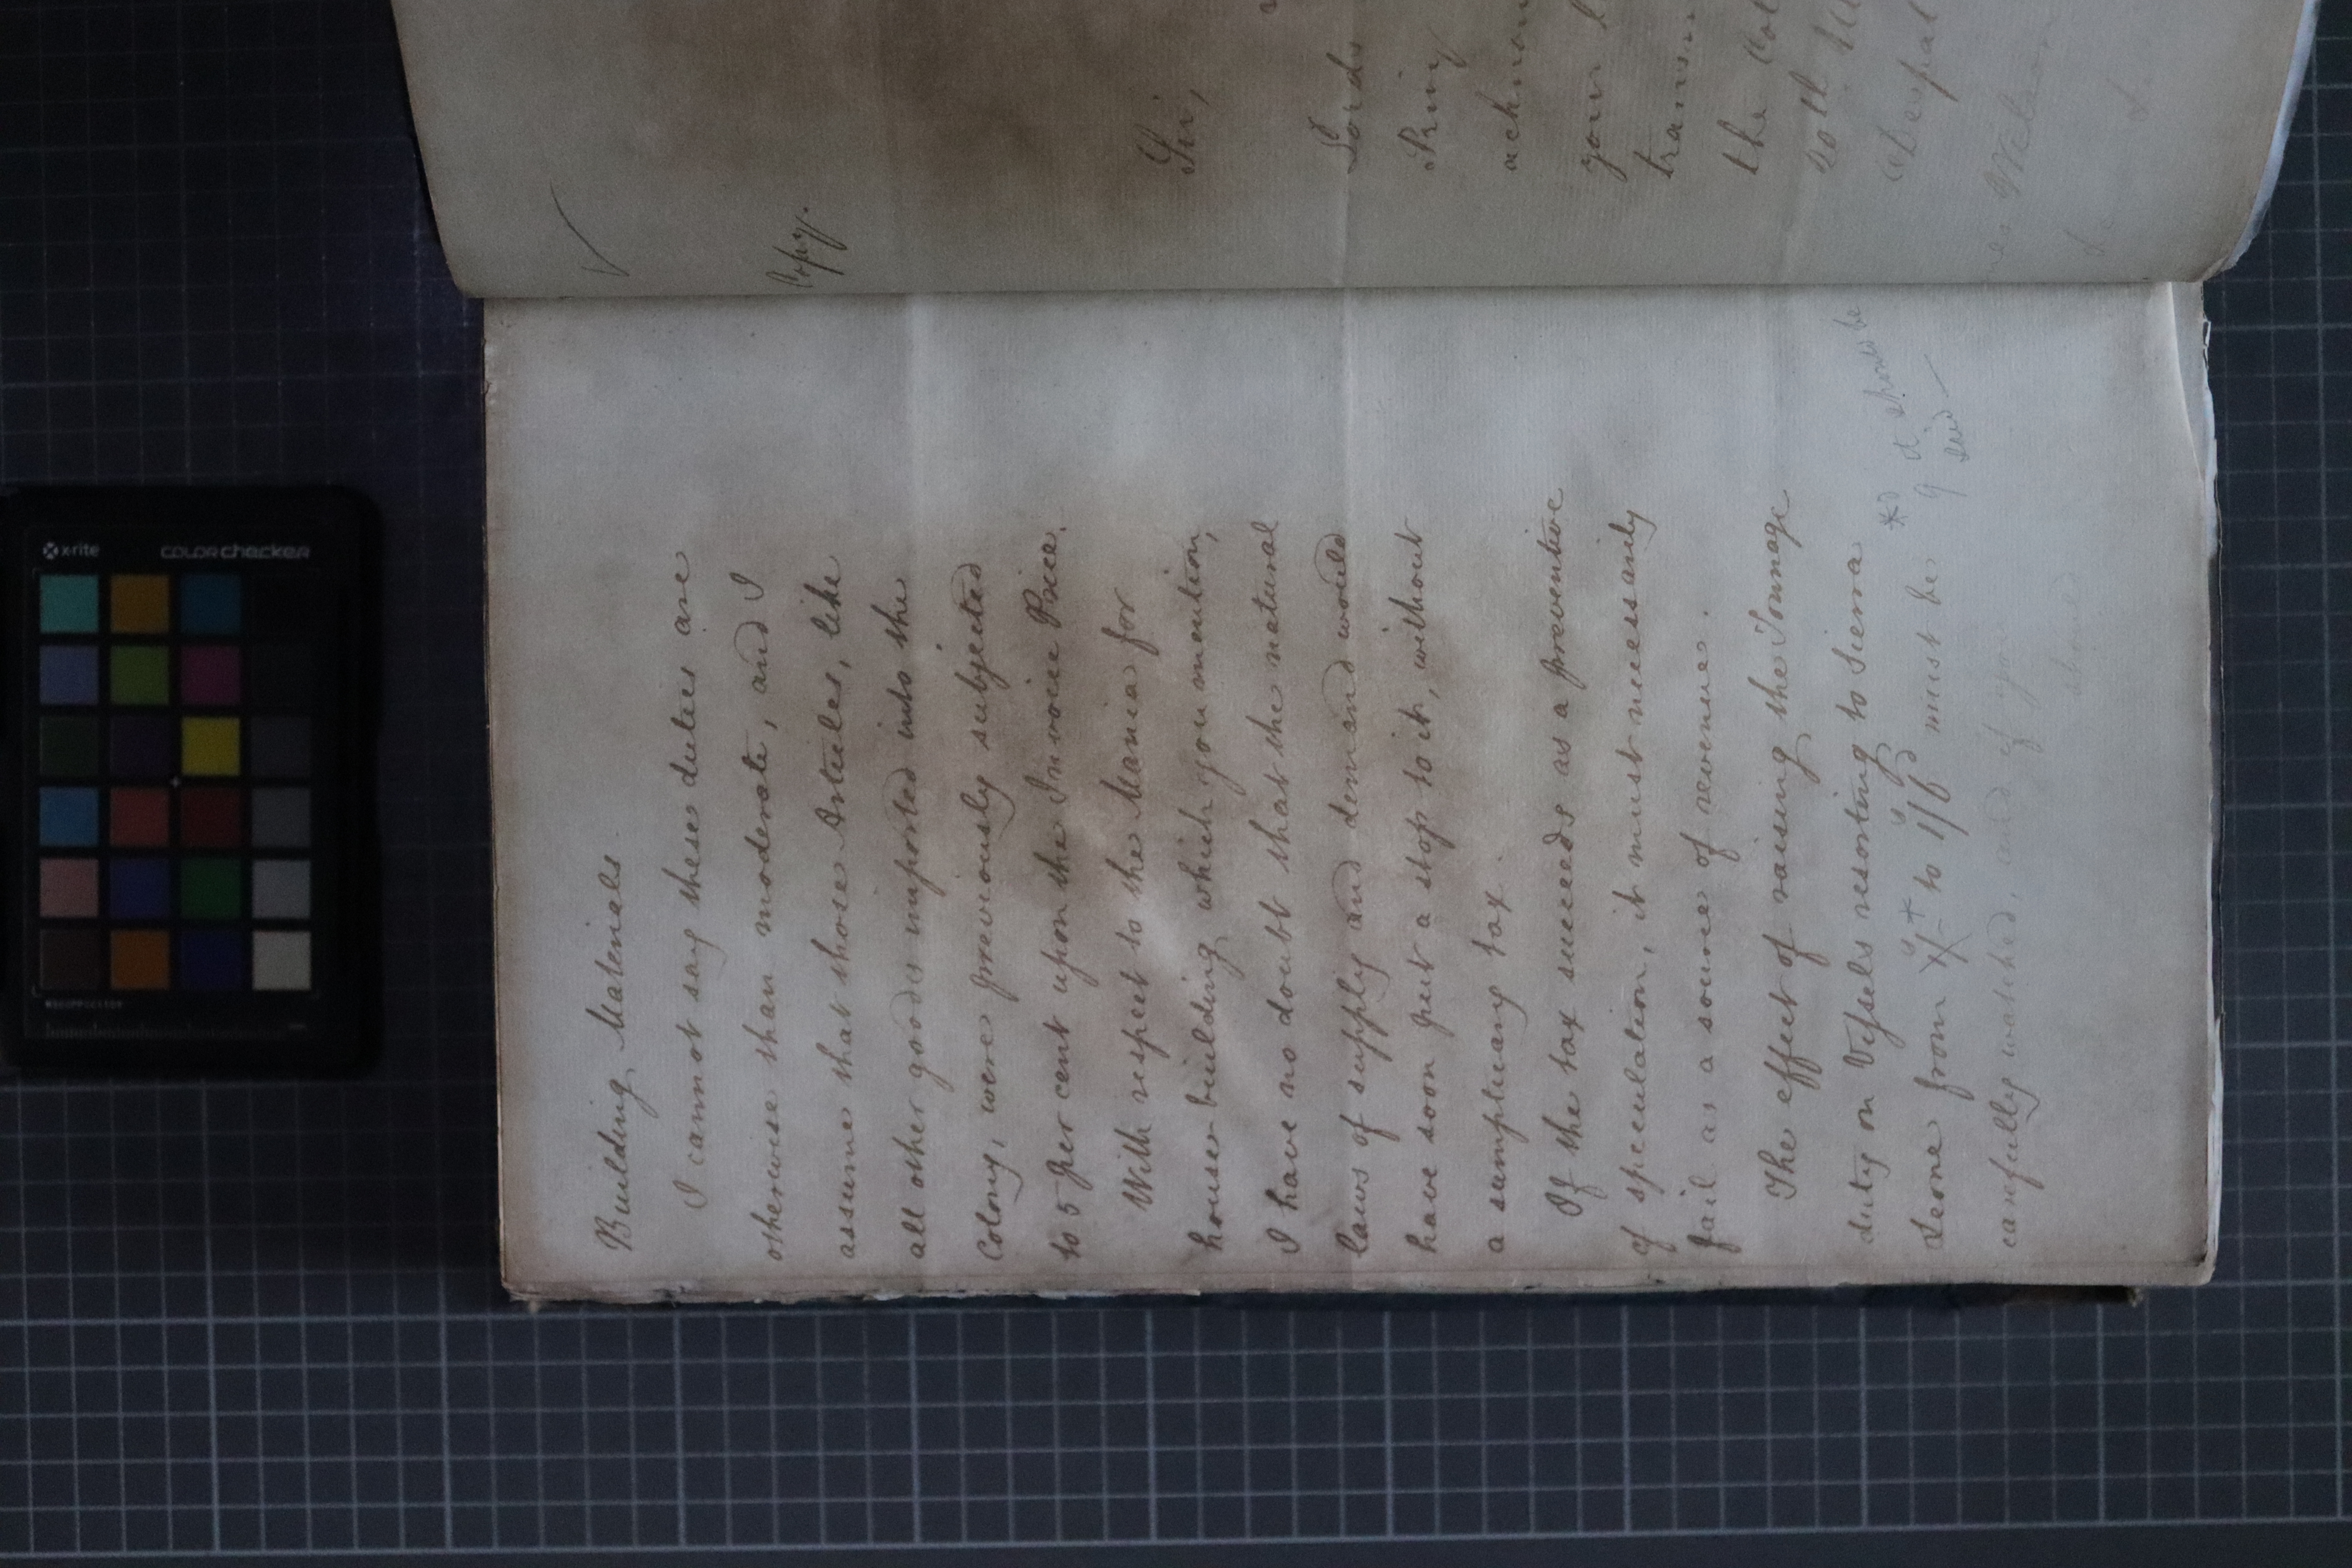 Building Materials
I cannot say these duties are
otherwise than moderate, and I
assume that those Articles, like
all other goods imported into the
Colony, were previously subjected
to 5 per cent upon the Invoice Price.
With respect to the Mania for
house-building which you mention,
I have no doubt that the natural
laws of supply and demand would
have soon put a stop to it, without
a sumptuary tax.
If the tax succeeds as a preventive
of speculation, it must necessarily
fail as a source of revenue.
The effect of raising the Tonnage
duty on Vessels resorting to Sierra
Leone from to 1/6d must be
carefully watched, and if you
should
it should be
Copy.
Sir,
Lords
Privy
your
the